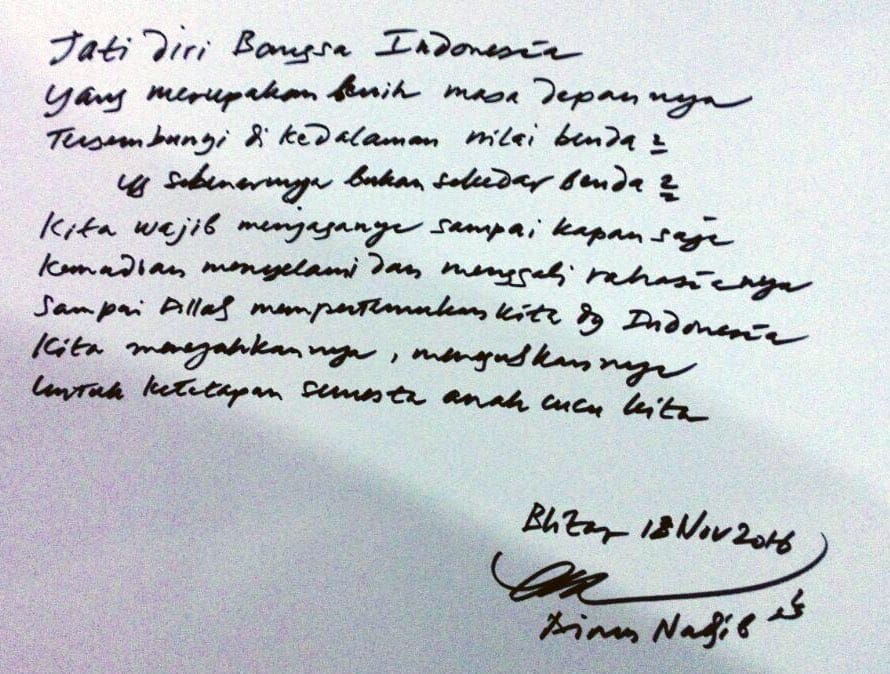 Jati diri Bangsa Indonesia
yang merupakan benih masa depannya
Tersembunyi di kedalaman nilai benda 2
yg sebenarnya bukan sekedar benda 2
Kita wajib menjaganya sampai kapan saja
Kemudian menyelami dan menggali rahasianya
Sampai Allah mempertemukan kita dg Indonesia
Kita mengasihkannya, 
untuk ketetapan semesta anak cucu kita
Blitar 18 Nov 2016
Nadjib